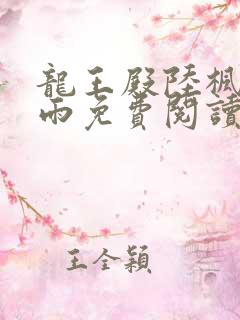 龍王殿陸楓
雨免費閱讀
王全穎